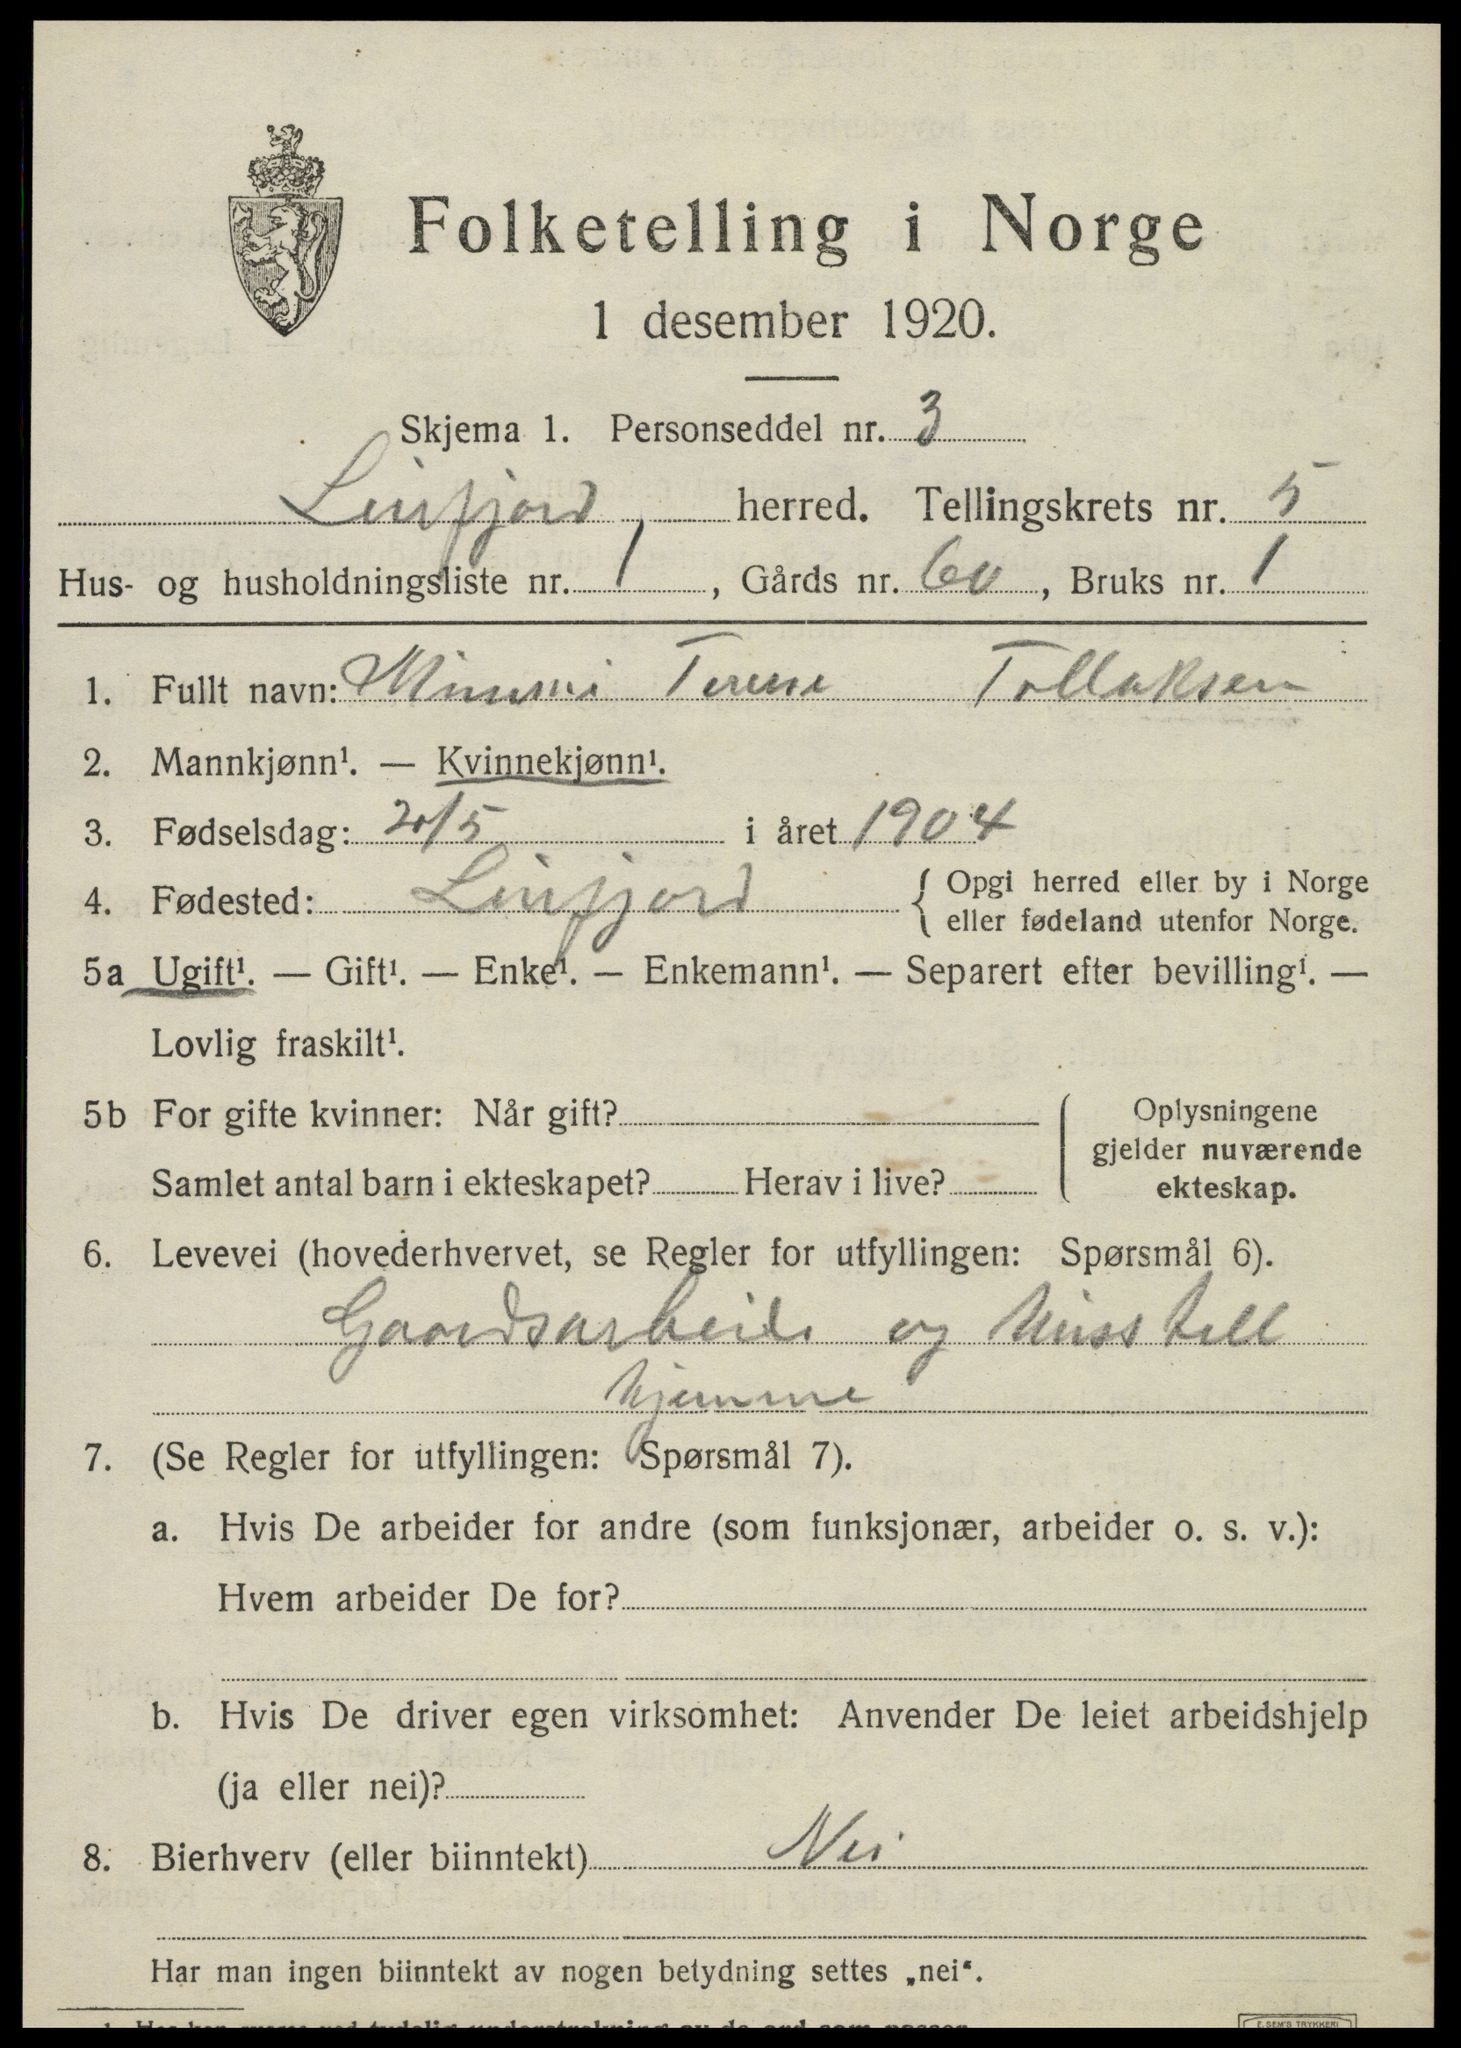 Folketelling i Norge
1 desember 1920.
Skjema 1. Personseddel nr. 3
Leirfjord, herred. Tellingskrets nr. 5
Hus- og husholdningsliste nr. 1, Gårds nr. 60, Bruks nr. 1
1. Fullt navn: Mimmi Terese Tollaksen
2. Mannkjønn¹. — Kvinnekjønn¹.
3. Fødselsdag: 20/5 i året 1904
4. Fødested: Leirfjord { Opgi herred eller by i Norge
eller fødeland utenfor Norge.
5a Ugift¹. — Gift¹. — Enke¹. — Enkemann¹. — Separert efter bevilling¹. —
Lovlig fraskilt¹.
5b For gifte kvinner: Når gift?
Samlet antal barn i ekteskapet? Herav i live?
Oplysningene
gjelder nuværende
ekteskap.
6. Levevei (hovederhvervet, se Regler for utfyllingen: Spørsmål 6).
Gaardsarbeide og Husstell
hjemme
7. (Se Regler for utfyllingen: Spørsmål 7).
a. Hvis De arbeider for andre (som funksjonær, arbeider o. s. v.):
Hvem arbeider De for?
b. Hvis De driver egen virksomhet: Anvender De leiet arbeidshjelp
(ja eller nei)?
8. Bierhverv (eller biinntekt) Nei
Har man ingen biinntekt av nogen betydning settes „nei“.
E. SEM'S TRYKKERI